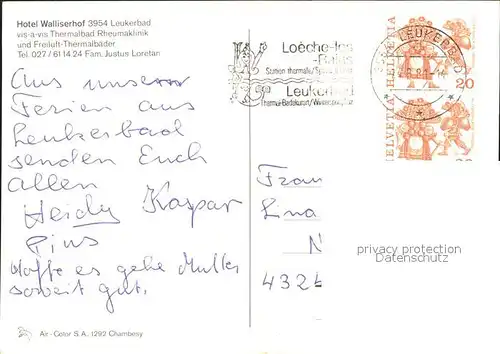 Hotel Walliserhof 3954 Leukerbad
vis-à-vis Thermalbad Rheumaklinik
und Freiluft-Thermalbäder
Tel. 027 / 61 14 24 Fam. Justus Loretan
Loèche-les
-Bains
Station thermale/
Leukerbad
Thermal-Badekurort/
LEUKERBAD
HELVETIA
20
HELVETIA
Aus unserer
Ferien aus
Leukerbad
senden Euch
allen
Heidy Kaspar
Pius
Hoffe es gehe Mutter
soweit gut.
Frau
Lina
N
4326
privacy protection
Datenschutz
Air-Color S.A., 1292 Chambesy